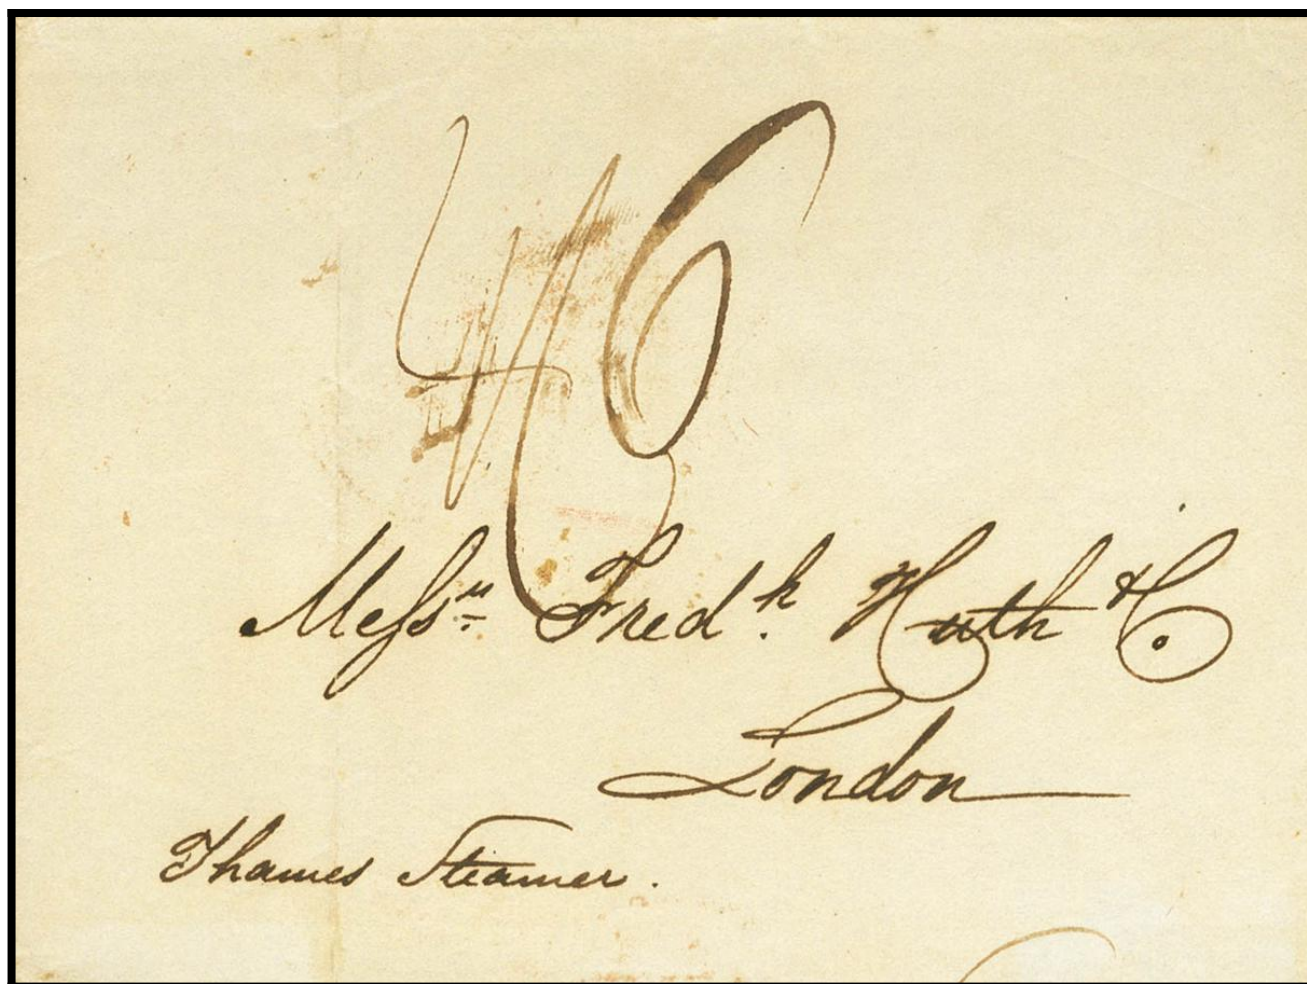 4/6
Mess.rs Fred.k Huth & Co.
London
Thames Steamer.